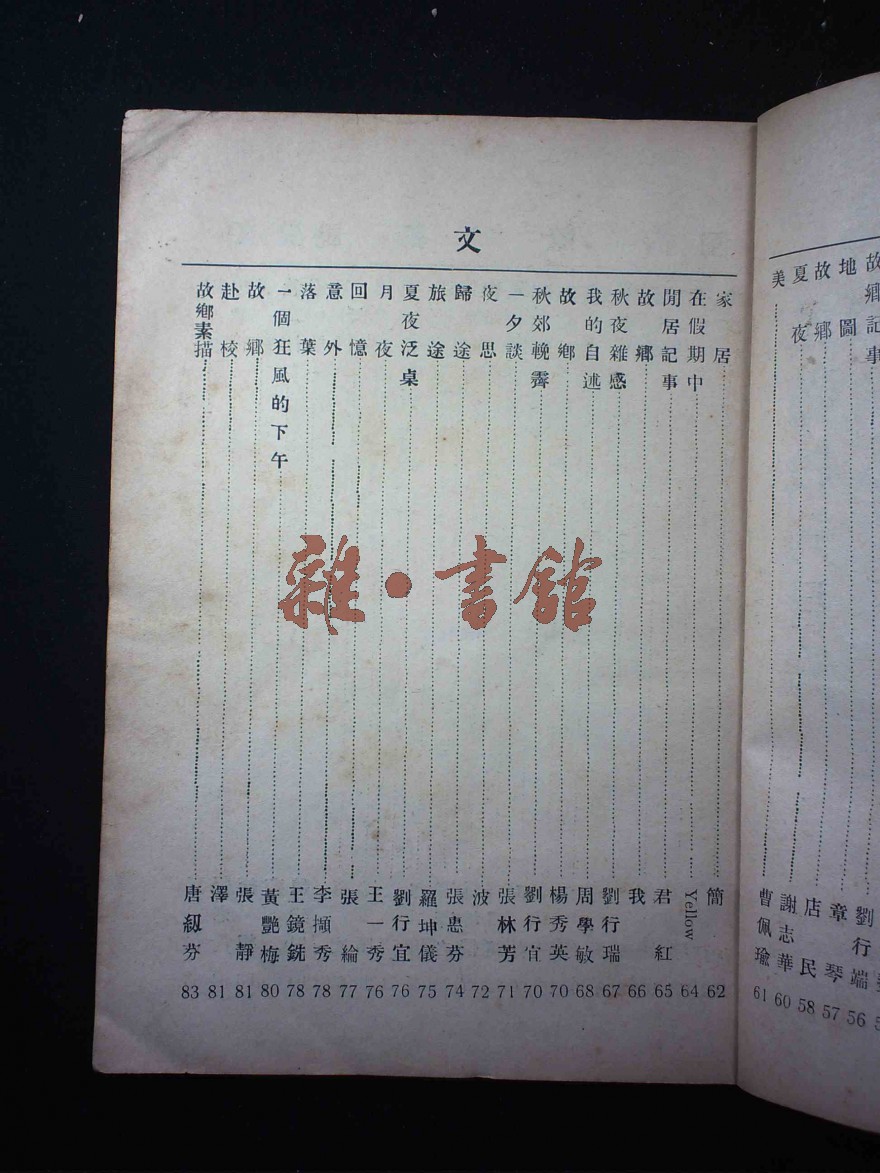 故鄉記事 劉行端 56
地圖 章琴 57
故鄉 店民 58
夏夜 謝志華 60
美 曹佩瑜 61
文
家居 簡 62
在假期中 Yellow 64
閒居記事 君紅 65
故鄉 我 66
秋夜雜感 劉行瑞 67
我的自述 周學敏 68
故鄉 楊秀英 70
秋郊晚霽 劉行宜 70
一夕談 張林芳 71
夜思 波 72
歸途 張惠芬 74
旅途 羅坤儀 75
夏夜泛桌 劉行宜 76
月夜 王一秀 76
回憶 張綸 77
意外 李擷秀 78
落葉 王鏡銑 78
一個狂風的下午 黃艷梅 80
故鄉 張靜 81
赴校 澤 81
故鄉素描 唐紉芬 83
雜·書館